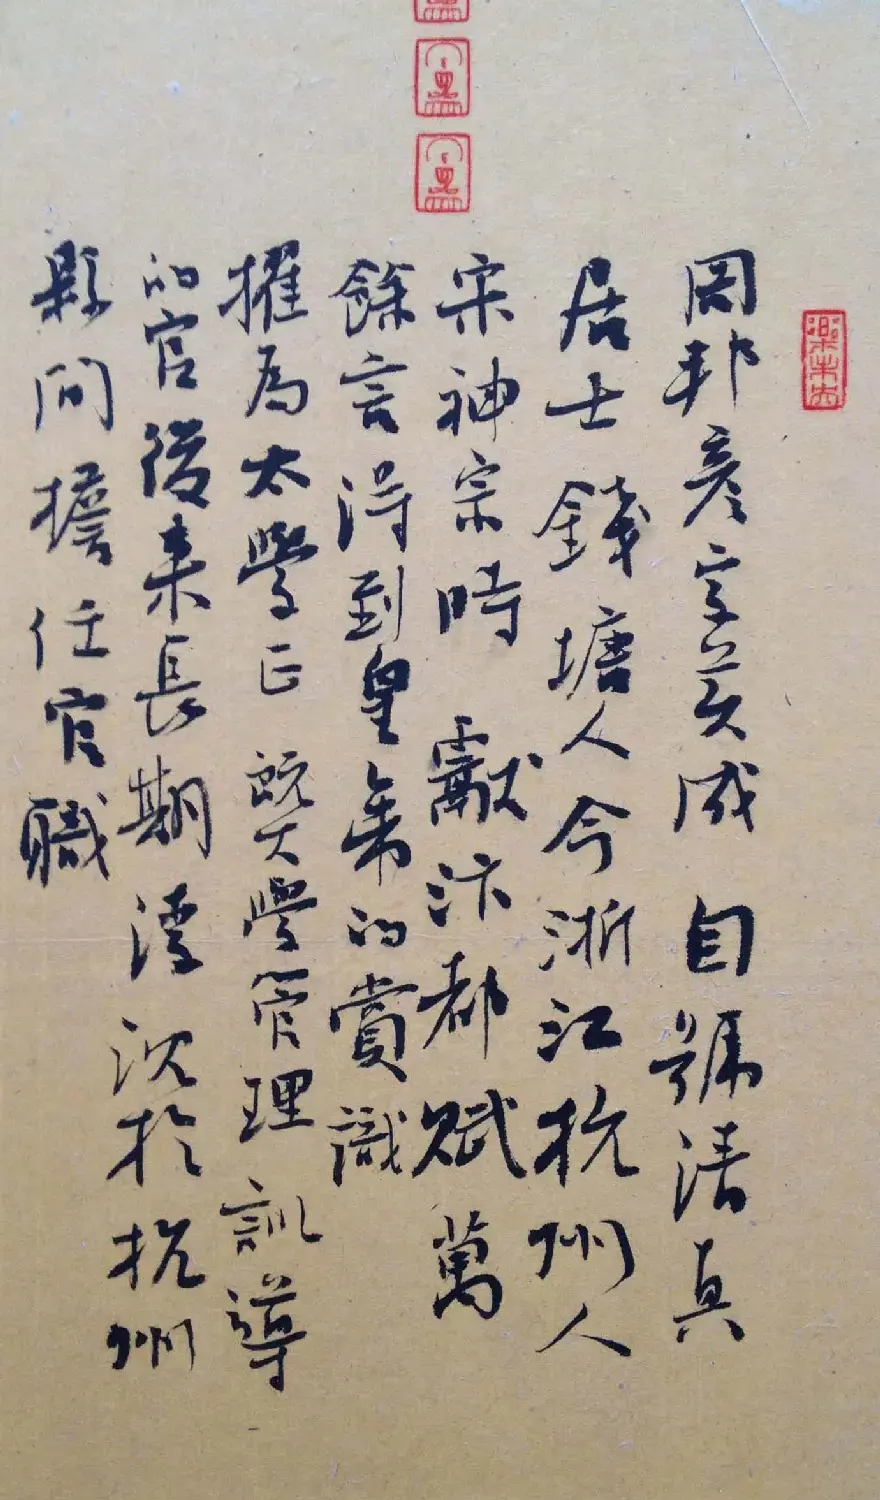 周邦彥字美成自號清真
居士錢塘人今浙江杭州人
宋神宗時獻汴都賦萬
餘言得到皇帝的賞識
擢為太學正既大學管理訓導
的官後来長期浮沉於杭州
縣間擔任官職